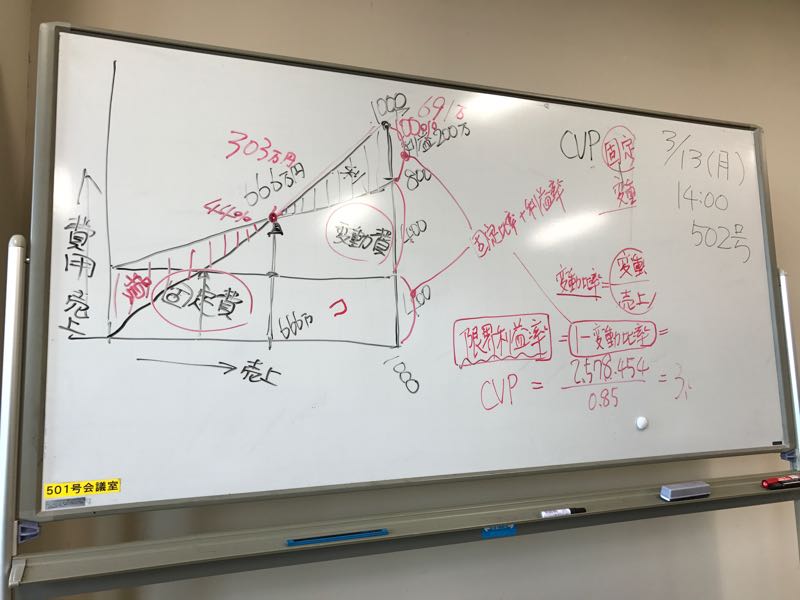 1000
691万
100%
利益200万
303万円
666万円
44%
800
変動費
400
固定費
400
666万
1000
↑費用売上
→売上
固定比率+利益率
CVP 固定
変動
3/13(月)
14:00
502号
変動比率=変動/売上
限界利益率=1-変動比率=
CVP = 2,578,454/0.85 = 3
501号会議室